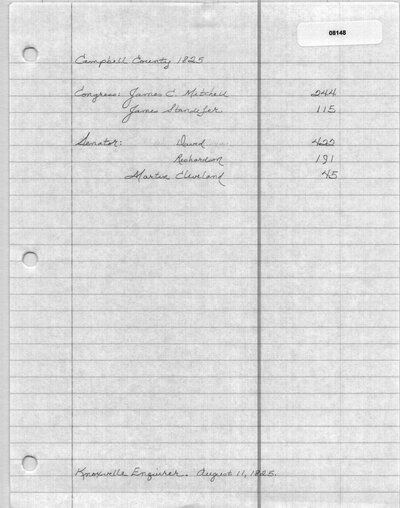 08148
Campbell County 1825
Congress: James C Mitchell 244
James Standefer 115
Senator: David 422
Richardson 191
Martin Cleveland 45
Knoxville Enquirer. August 11, 1825.